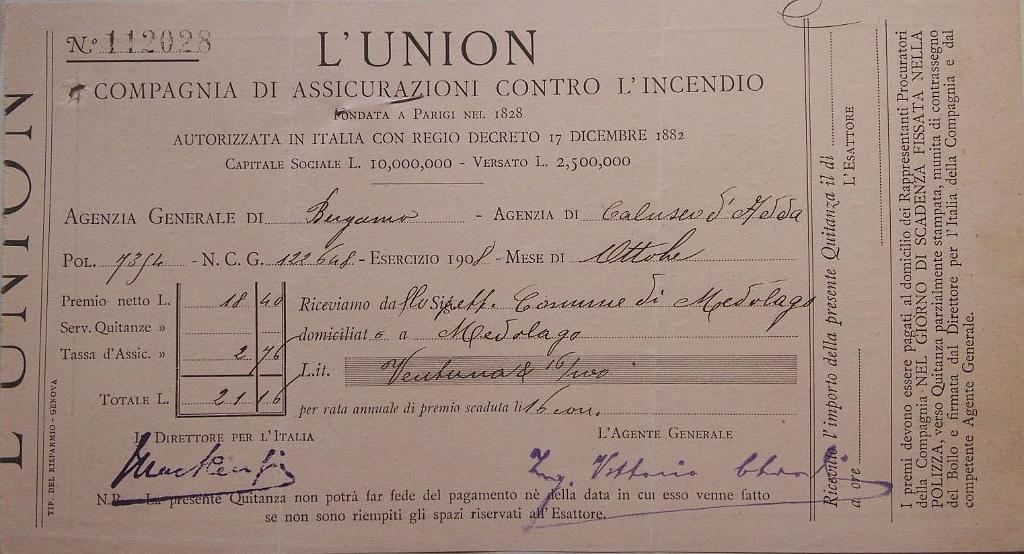 L'UNION
Nº 112028
L'UNION
COMPAGNIA DI ASSICURAZIONI CONTRO L'INCENDIO
FONDATA A PARIGI NEL 1828
AUTORIZZATA IN ITALIA CON REGIO DECRETO 17 DICEMBRE 1882
CAPITALE SOCIALE L. 10,000,000 - VERSATO L. 2,500,000
AGENZIA GENERALE DI Bergamo - AGENZIA DI Calusco d'Adda
POL. 7354 - N. C. G. 122648 - ESERCIZIO 1908 - MESE DI Ottobe
Premio netto L. 18 40
Serv. Quitanze »
Tassa d'Assic. » 2 76
TOTALE L. 21 16
Riceviamo da Comune di Medolago
domiciliato a Medolago
Lit. Ventuna & 16/100
per rata annuale di premio scaduta li 16 corr.
IL DIRETTORE PER L'ITALIA
L'AGENTE GENERALE
Ing. Vittorio
N.B. La presente Quitanza non potrà far fede del pagamento nè della data in cui esso venne fatto
se non sono riempiti gli spazi riservati all'Esattore.
TIP. DEL RISPARMIO - GENOVA
Ricevuto l'importo della presente Quitanza il dì
a ore
L'ESATTORE
I premi devono essere pagati al domicilio dei Rappresentanti Procuratori
della Compagnia NEL GIORNO DI SCADENZA FISSATA NELLA
POLIZZA, verso Quitanza parzialmente stampata, munita di contrassegno
del Bollo e firmata dal Direttore per l'Italia della Compagnia e dal
competente Agente Generale.